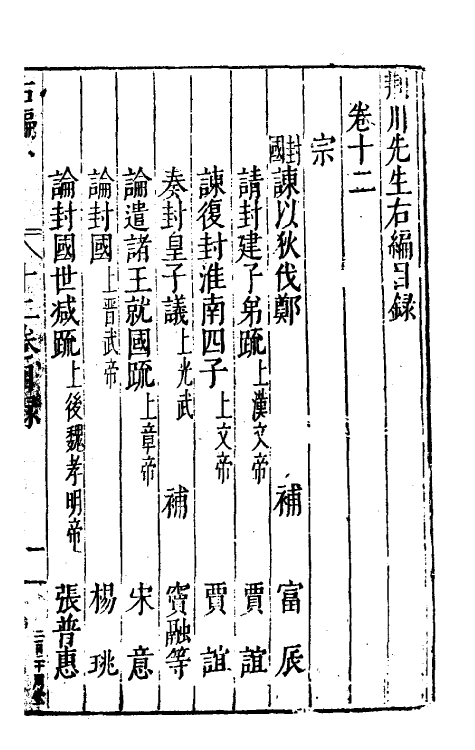 荆川先生右編目録
卷十二
宗
封國
諫以狄伐鄭 補 富辰
請封建子弟疏 上漢文帝 賈誼
諫復封淮南四子 上文帝 賈誼
奏封皇子議 上光武 補 竇融等
論遣諸王就國疏 上章帝 宋意
論封國 上晋武帝 楊珧
論封國世减疏 上後魏孝明帝 張普惠
右編 十二卷目録 一